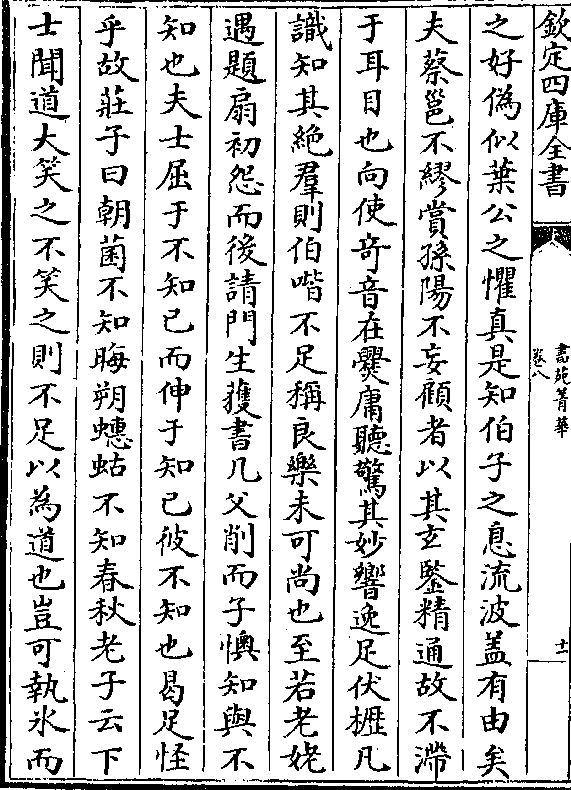 欽定四庫全書
書苑菁華
卷八
十一
之好僞似葉公之懼真是知伯子之息流波盖有由矣
夫蔡邕不繆賞孫陽不妄顧者以其玄鑒精通故不滯
于耳目也向使竒音在爨庸聽驚其妙響逸足伏櫪凡
識知其絶羣則伯喈不足稱良樂未可尚也至若老姥
遇題扇初怨而後請門生獲書几父削而子懊知與不
知也夫士屈于不知已而伸于知已彼不知也曷足怪
乎故莊子曰朝菌不知晦朔蟪蛄不知春秋老子云下
士聞道大笑之不笑之則不足以為道也豈可執氷而